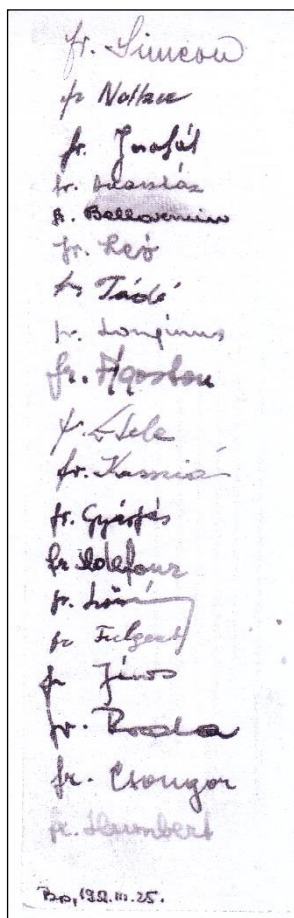 fr. Simeon
fr. Notker
fr. Jozafát
fr.
fr. Bellarmin
fr. Leó
fr. Tádé
fr. Longinus
fr. Ágoston
fr. Etele
fr. Kasszián
fr. Gyárfás
fr. Ildefonz
fr.
fr. Fulgent
fr. János
fr.
fr. Csongor
fr. Humbert
Bp, 1952.III.25.